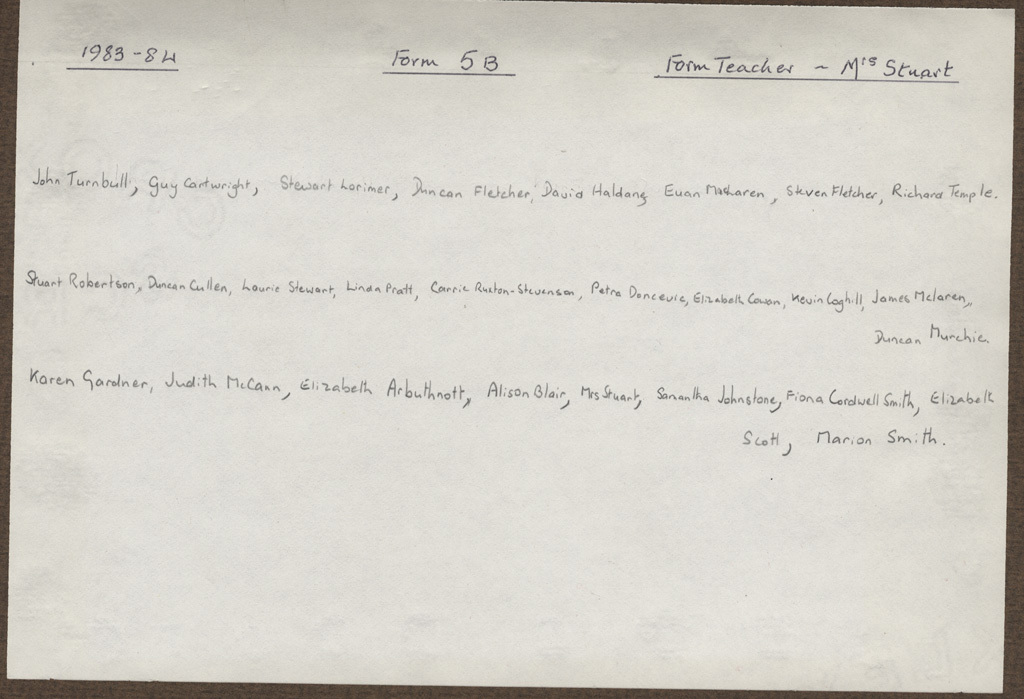 1983-84 Form 5B Form Teacher ~ Mrs Stuart
John Turnbull, Guy Cartwright, Stewart Lorimer, Duncan Fletcher, David Haldane, Euan MacLaren, Steven Fletcher, Richard Temple.
Stuart Robertson, Duncan Cullen, Laurie Stewart, Linda Pratt, Carrie Ruxton-Stevenson, Petra Doncevic, Elizabeth Cowan, Kevin Coghill, James McLaren,
Duncan Murchie
Karen Gardner, Judith McCann, Elizabeth Arbuthnott, Alison Blair, Mrs Stuart, Samantha Johnstone, Fiona Cordwell Smith, Elizabeth
Scott, Marion Smith.